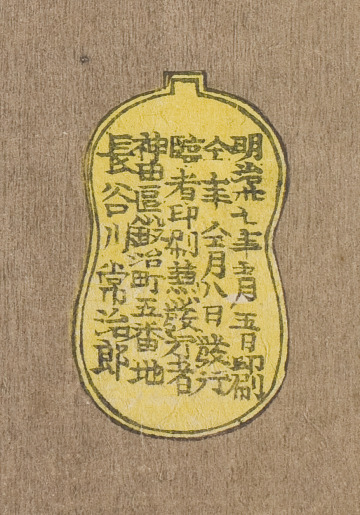 明治七年月五日印刷
仝年仝月八日發行
臨者印刷兼發行者
神田區鍛冶町五番地
長谷川常治郎